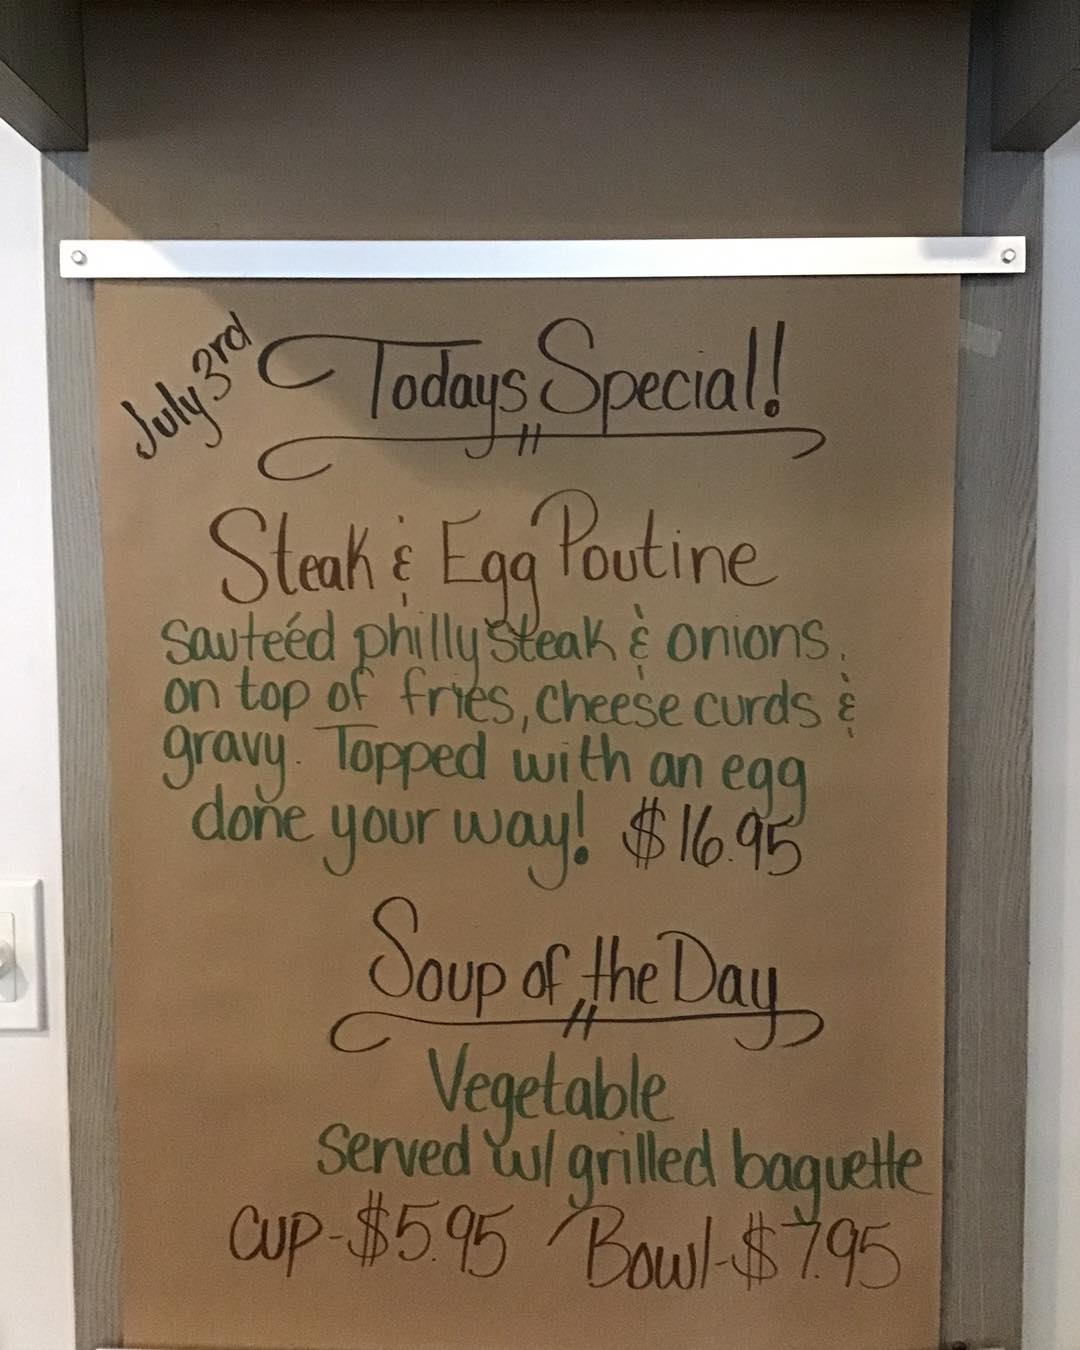 July 3rd
Todays Special!
Steak & Egg Poutine
sauteéd philly steak & onions.
on top of fries, cheese curds &
gravy. Topped with an egg
done your way! $16.95
Soup of the Day
Vegetable
served w/ grilled baguette
cup-$5.95 Bowl-$7.95